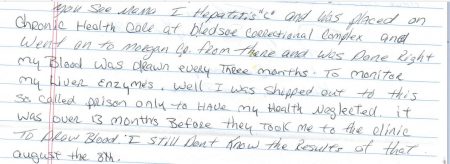 you See Mama I Hepatitis "C" and was placed on
Chronic Health Care at Bledsoe Correctional Complex and
Went on to morgan Co. from there and was Done Right
my Blood was drawn every Three months. To monitor
my Liver Enzymes. Well I was shipped out to this
so called prison only to Have my Health Neglected. it
was over 13 months Before they Took me to the clinic
To Draw Blood. I still Dont Know the Results of that
august the 8th.